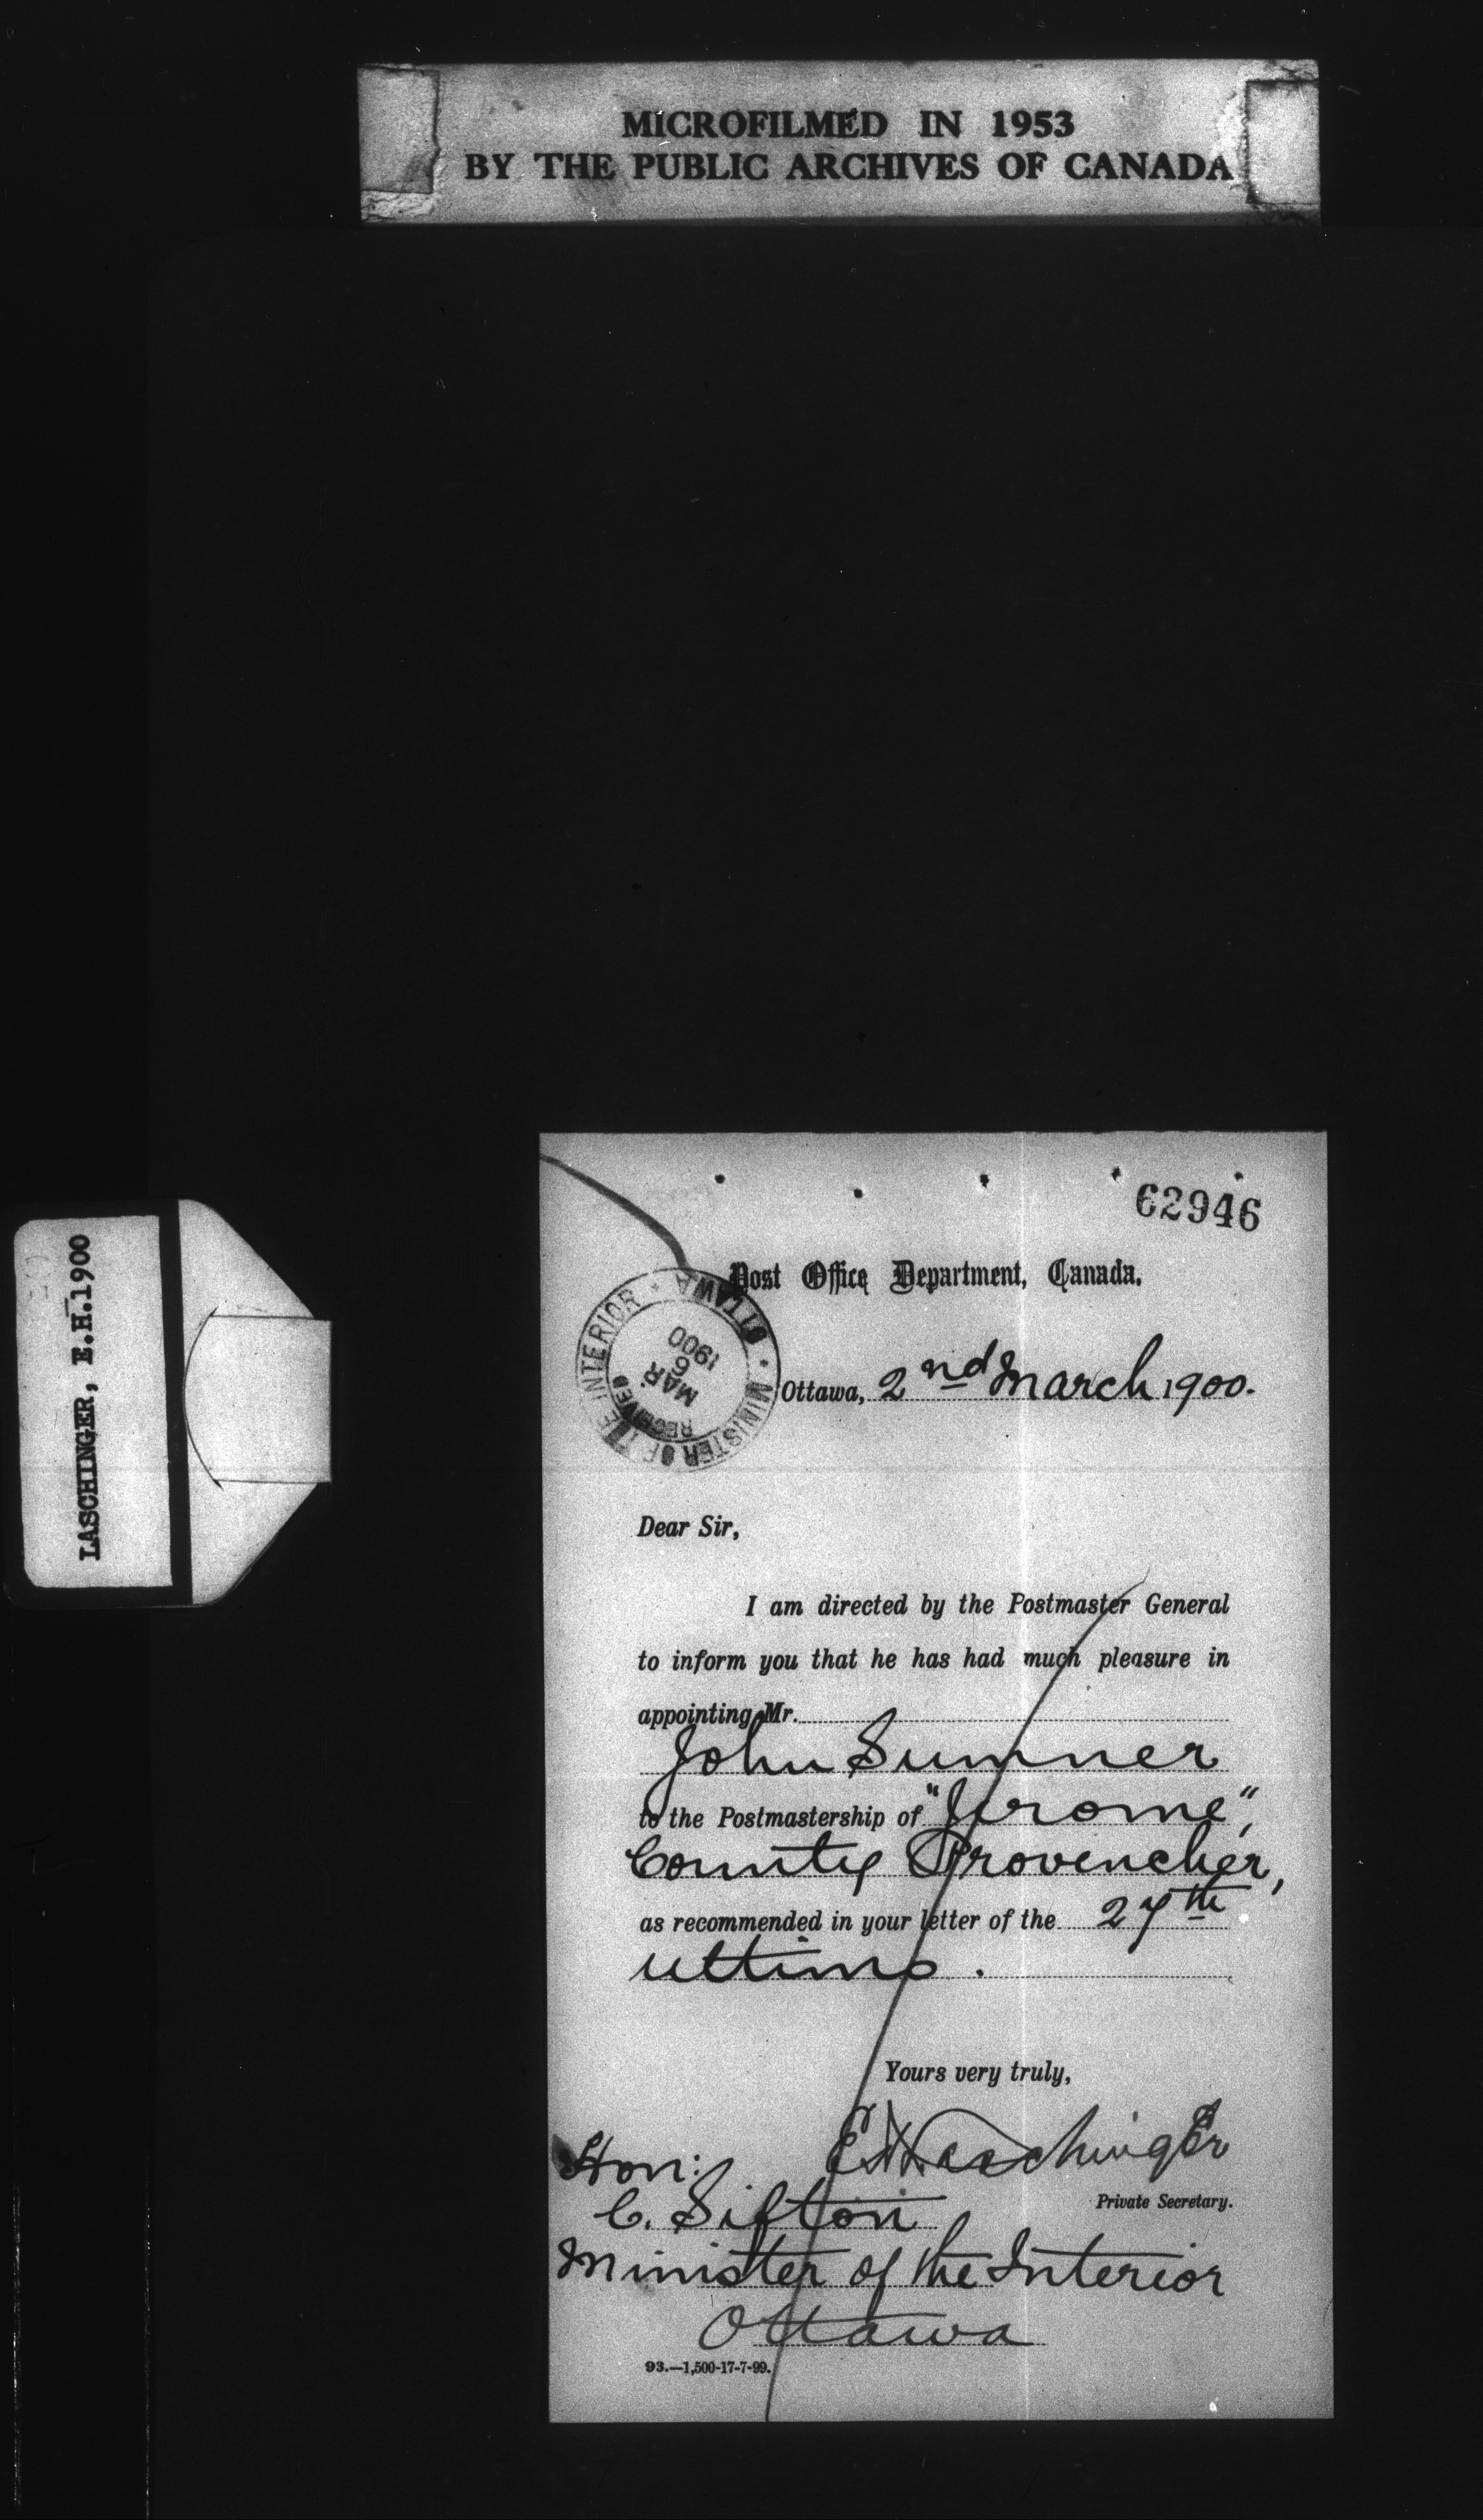 MICROFILMED IN 1953
BY THE PUBLIC ARCHIVES OF CANADA
LASCHINGER, E.H. 1900
62946
Post Office Department, Canada.
MINISTER OF THE INTERIOR * OTTAWA *
RECEIVED
MAR
6
1900
Ottawa, 2nd March 1900.
Dear Sir,
I am directed by the Postmaster General
to inform you that he has had much pleasure in
appointing Mr.
John Sumner
to the Postmastership of "Jerome",
County Provencher,
as recommended in your letter of the 27th
ultimo.
Yours very truly,
E H Laschinger
Private Secretary.
Hon:
C. Sifton
Minister of the Interior
Ottawa
93.—1,500-17-7-99.